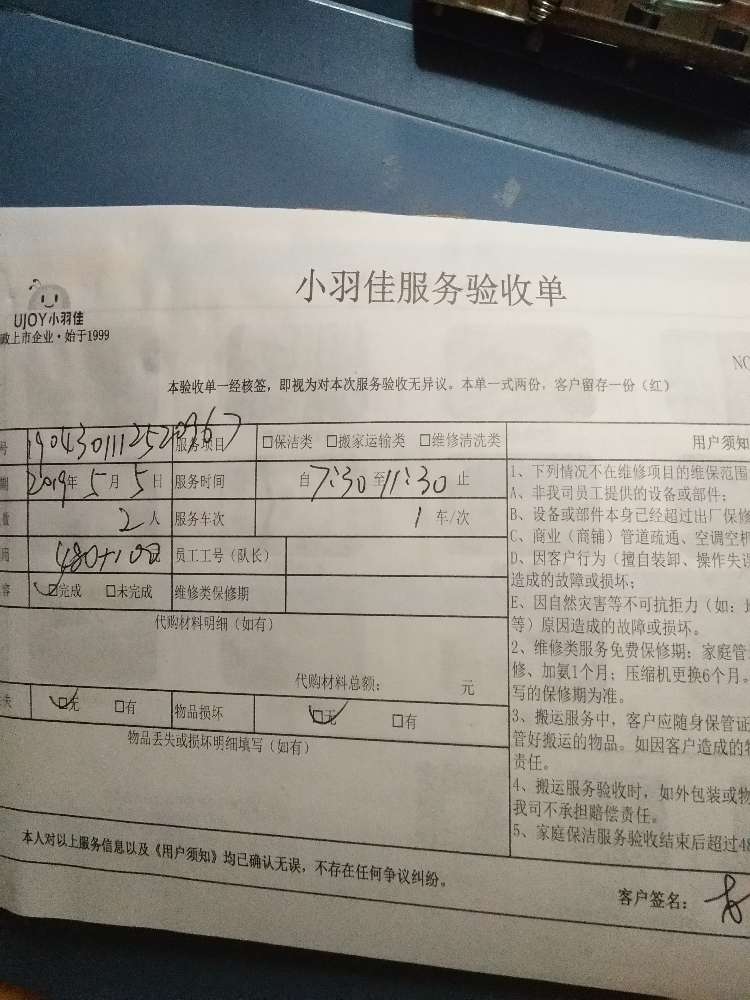 小羽佳服务验收单
UJOY小羽佳
政上市企业·始于1999
NO
本验收单一经核签，即视为对本次服务验收无异议。本单一式两份，客户留存一份（红）
号 服务项目 □保洁类 □搬家运输类 □维修清洗类 用户须知
2019年5月5日 服务时间 自7:30至11:30止
2人 服务车次 1车/次
480+100元 员工工号（队长）
容 ☑完成 □未完成 维修类保修期
代购材料明细（如有）
代购材料总额： 元
失 ☑无 □有 物品损坏 ☑无 □有
物品丢失或损坏明细填写（如有）
1、下列情况不在维修项目的维保范围
A、非我司员工提供的设备或部件；
B、设备或部件本身已经超过出厂保修
C、商业（商铺）管道疏通、空调空机
D、因客户行为（擅自装卸、操作失误
造成的故障或损坏；
E、因自然灾害等不可抗拒力（如：
等）原因造成的故障或损坏。
2、维修类服务免费保修期：家庭管
修、加氨1个月；压缩机更换6个月。
写的保修期为准。
3、搬运服务中，客户应随身保管证
管好搬运的物品。如因客户造成的
责任。
4、搬运服务验收时，如外包装或物
我司不承担赔偿责任。
5、家庭保洁服务验收结束后超过48
本人对以上服务信息以及《用户须知》均已确认无误，不存在任何争议纠纷。
客户签名：